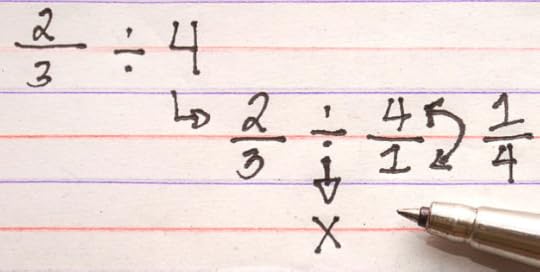 2/3 ÷ 4
↳ 2/3 ÷ 4/1 1/4
↓
X